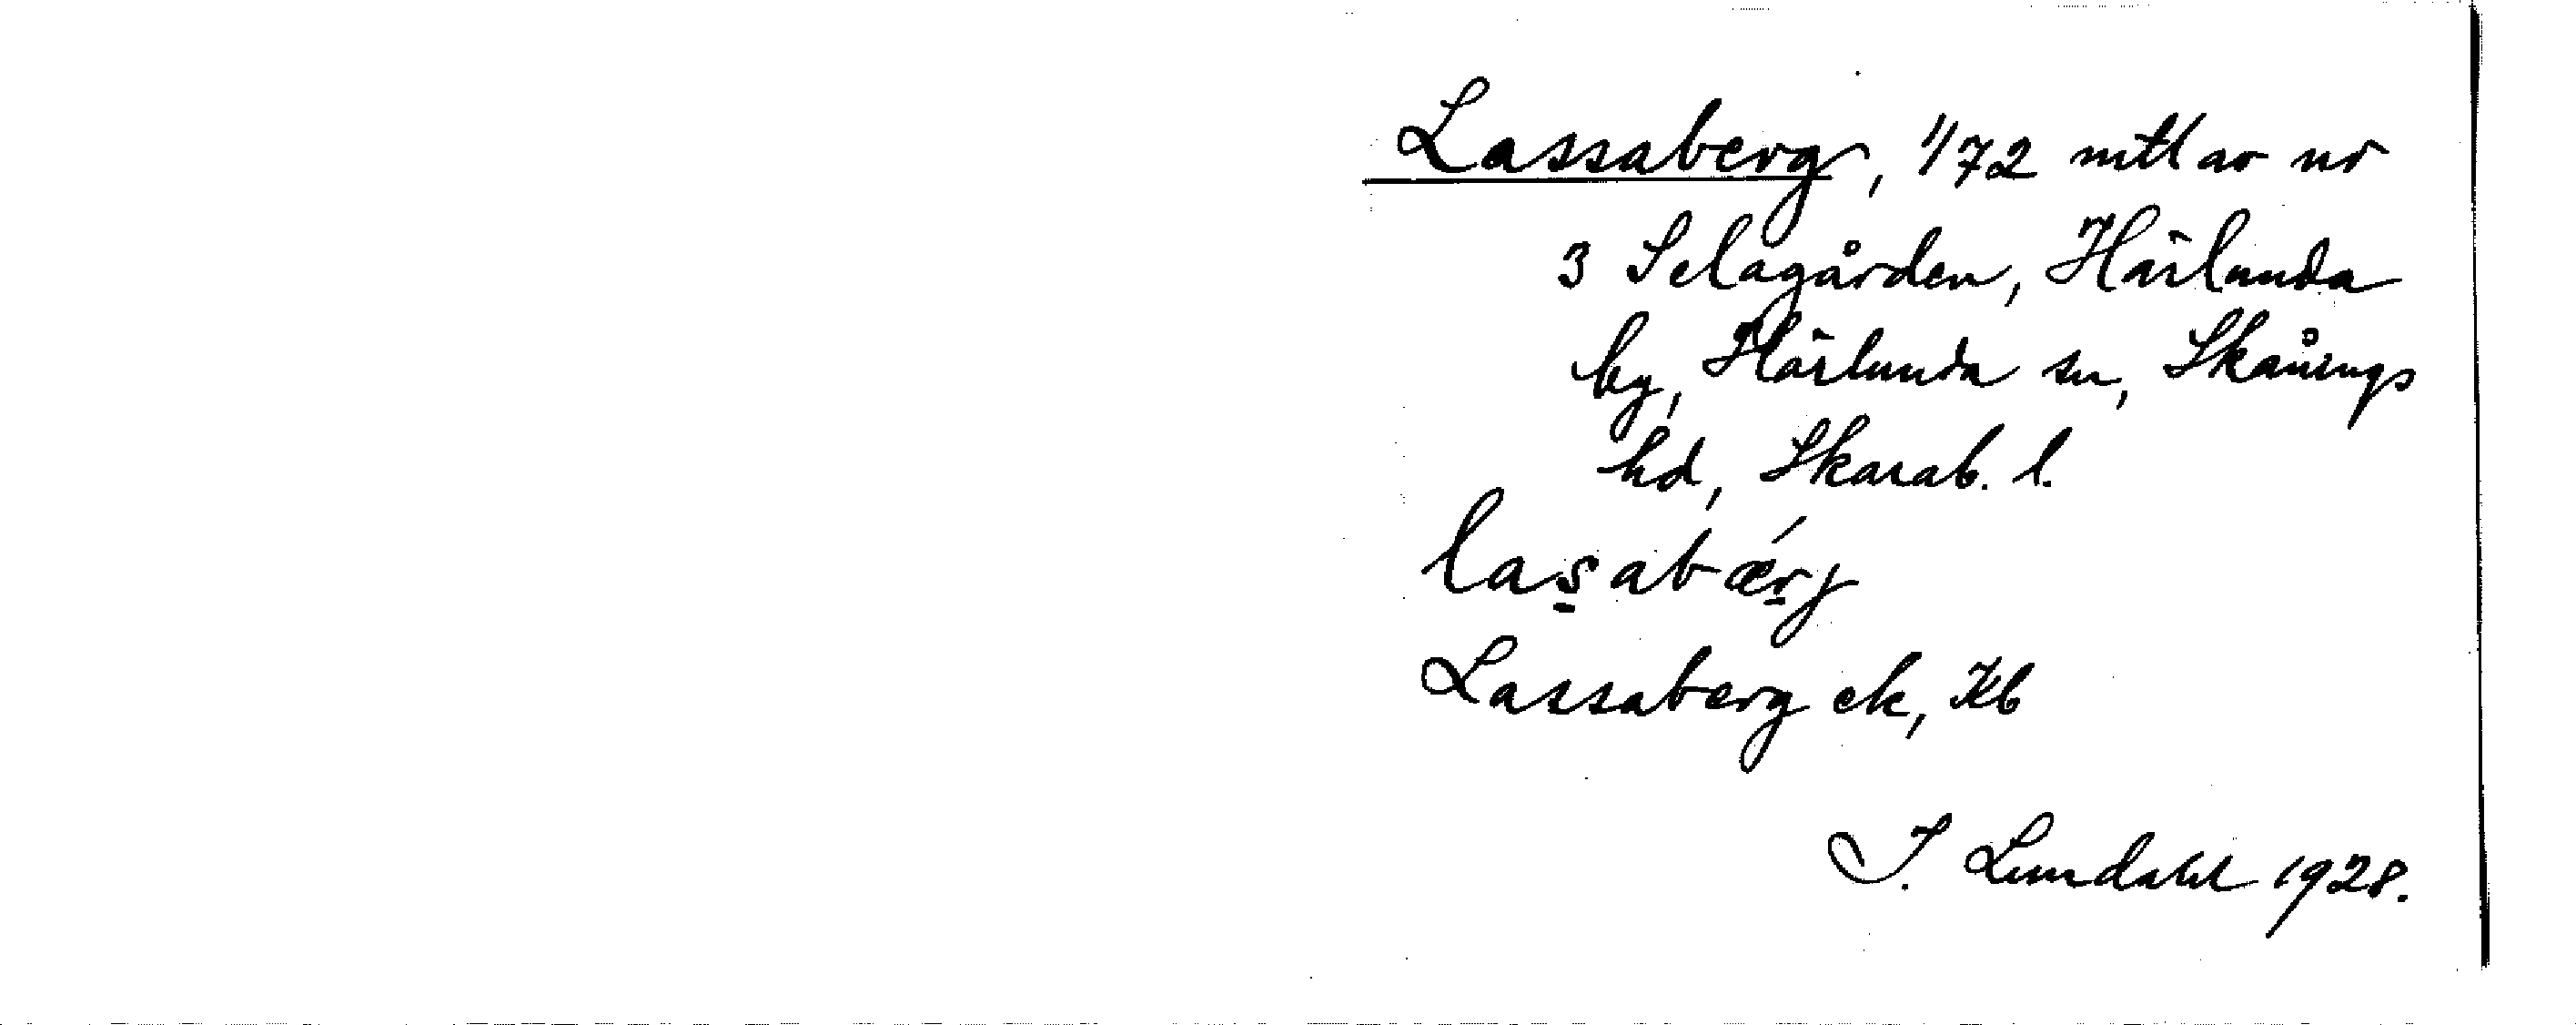 Lassaberg, 1/72 mtl av nr
3 Selagården, Härlunda
by, Härlunda sn, Skånings
hd, Skarab. l.
las̠abǽr̠j
Lassaberg ek, Kb
I. Lundahl 1928.